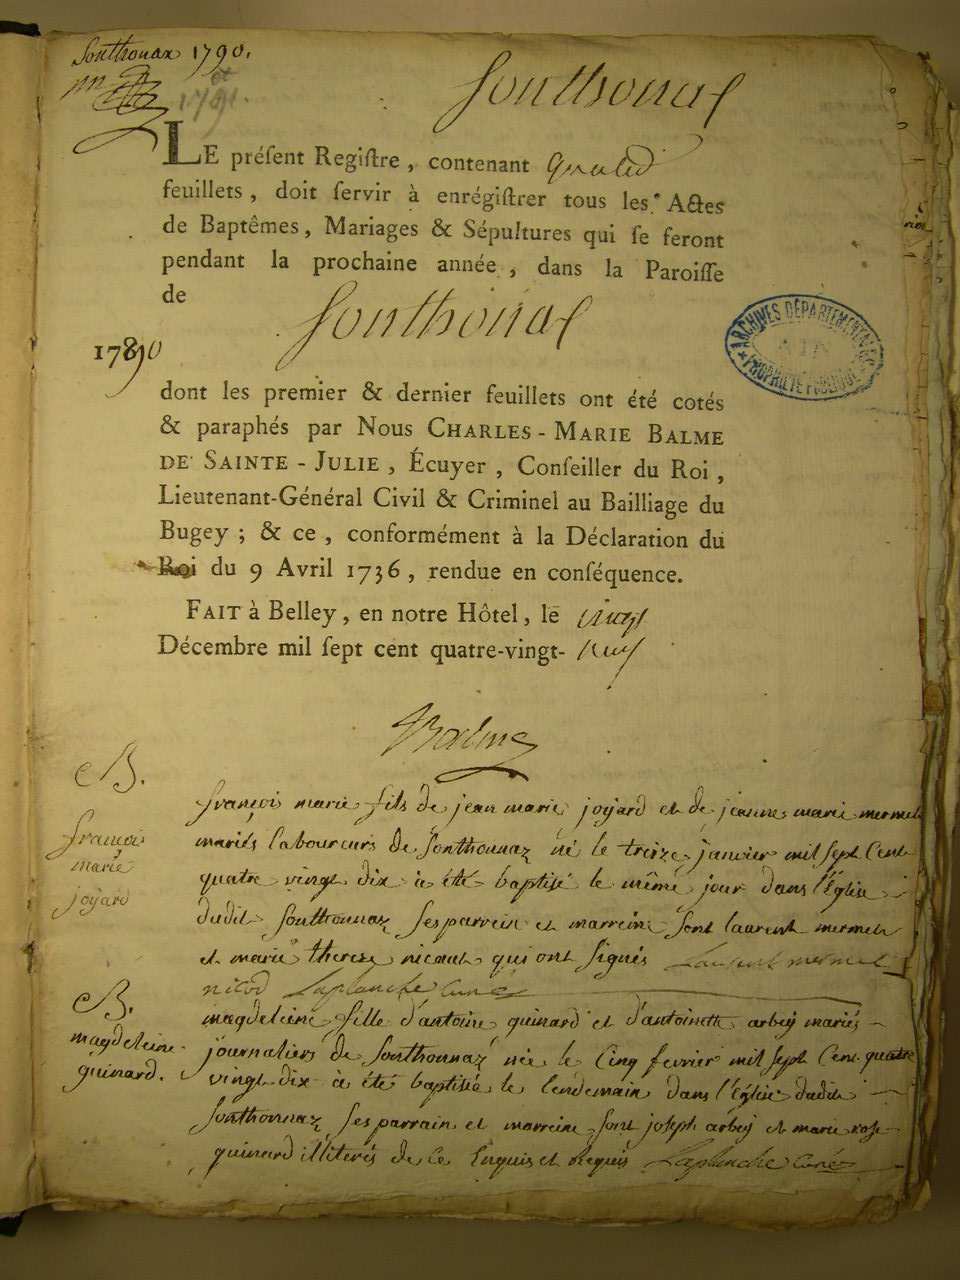 Sonthonax 1790.
et
1791.
Sonthonax
LE préſent Regiſtre, contenant
feuillets, doit ſervir à enrégiſtrer tous les Actes
de Baptêmes, Mariages & Sépultures qui ſe feront
pendant la prochaine année, dans la Paroiſſe
de Sonthonax
1790
dont les premier & dernier feuillets ont été cotés
& paraphés par Nous CHARLES-MARIE BALME
DE SAINTE-JULIE, Écuyer, Conſeiller du Roi,
Lieutenant-Général Civil & Criminel au Bailliage du
Bugey; & ce, conformément à la Déclaration du
Roi du 9 Avril 1736, rendue en conſéquence.
FAIT à Belley, en notre Hôtel, le vingt
Décembre mil ſept cent quatre-vingt- neuf
Balme
ARCHIVES DÉPARTEMENTALES
AIN
PROPRIÉTÉ PUBLIQUE
B.
françois
marie
joyard
françois marie fils de jean marie joyard et de jeanne marie mermet
mariés laboureurs de Sonthonnaz né le treize janvier mil sept cent
quatre vingt dix a été baptisé le même jour dans l'Église
dudit Sonthonnaz ses parrein et marreine sont laurent mermet
et marie therese nicaut qui ont signés Laurent mermet
nicod Laplanche curé
B.
magdeleine
guinard.
magdeleine fille d'antoine guinard et d'antoinette arbey mariés
journaliers de Sonthonnaz née le cinq fevrier mil sept cent quatre
vingt dix a été baptisée le lendemain dans l'Église dudit
Sonthonnaz ses parrain et marreine sont joseph arbey et marie rose
guinard illiterés de ce Enquis et Requis Laplanche curé